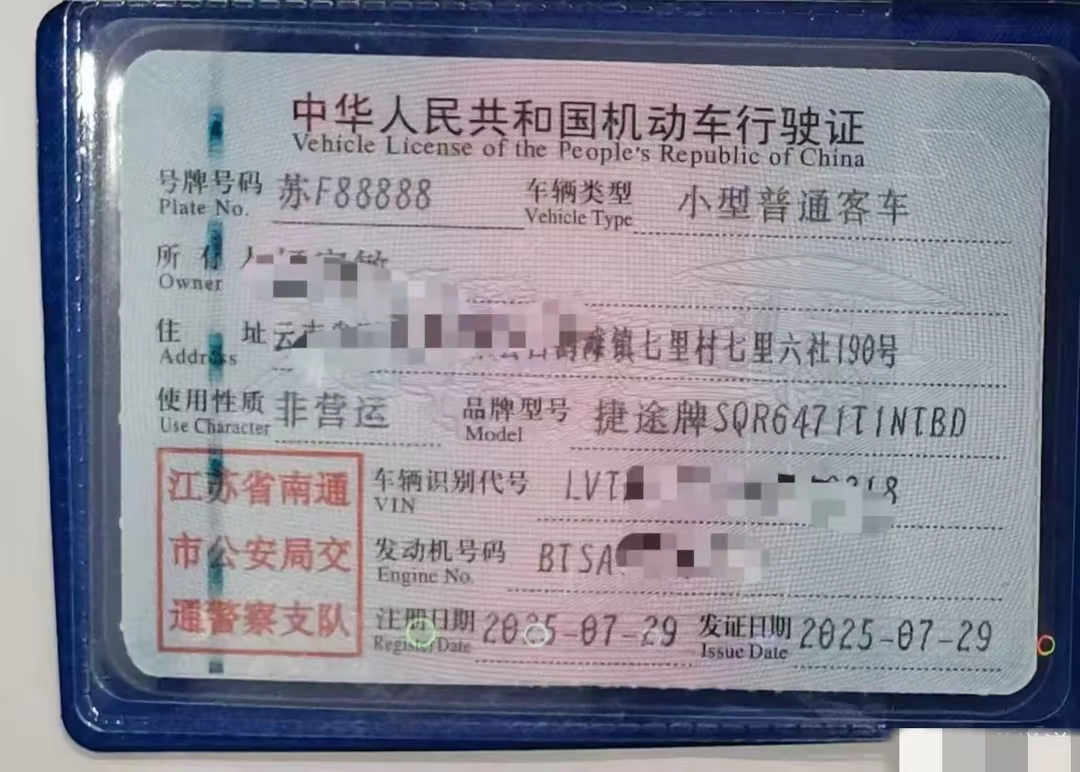 中华人民共和国机动车行驶证
Vehicle License of the People's Republic of China
号牌号码 苏F88888 车辆类型 小型普通客车
Plate No. Vehicle Type
所有人
Owner
住址 云南 滩镇七里村七里六社190号
Address
使用性质 非营运 品牌型号 捷途牌SQR6471T1NTBD
Use Character Model
江苏省南通
市公安局交
通警察支队
车辆识别代号 LVT
VIN
发动机号码 BTSA
Engine No.
注册日期 2025-07-29 发证日期 2025-07-29
Register Date Issue Date